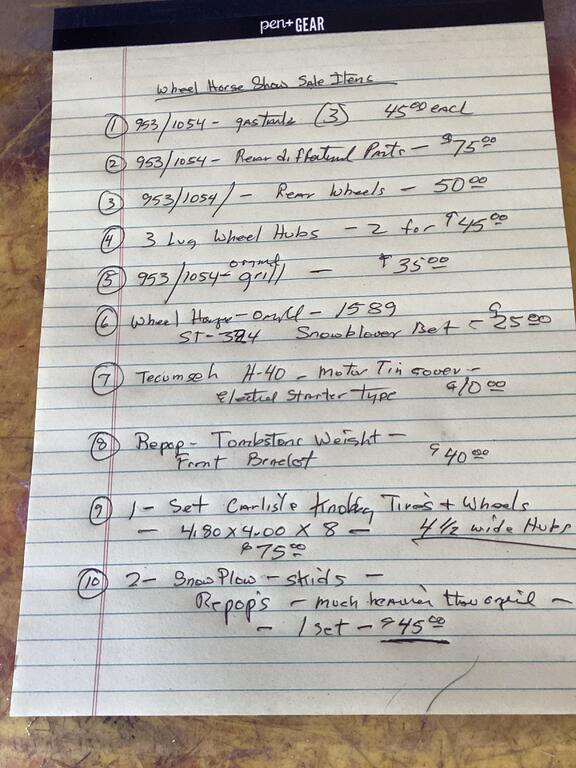 pen+GEAR
Wheel Horse Show Sale Items
① 953/1054 - gas tanks (3) 45.00 each
② 953/1054 - Rear differential Parts - $75.00
③ 953/1054/ - Rear Wheels - 50.00
④ 3 Lug Wheel Hubs - 2 for $45.00
⑤ 953/1054 - grill - $35.00
⑥ Wheel Horse - - 1589
ST-324 Snowblower Belt - $25.00
⑦ Tecumseh H-40 - Motor Tin cover -
Electrical Starter Type $10.00
⑧ Repop - Tombstone Weight -
Front Bracket $40.00
⑨ 1 - Set Carlisle Knobby Tires + Wheels
- 4.80 x 4.00 x 8 - 4 1/2 wide Hubs
$75.00
⑩ 2 - Snow Plow - skids -
Repop's - much heavier than -
- 1 set - $45.00